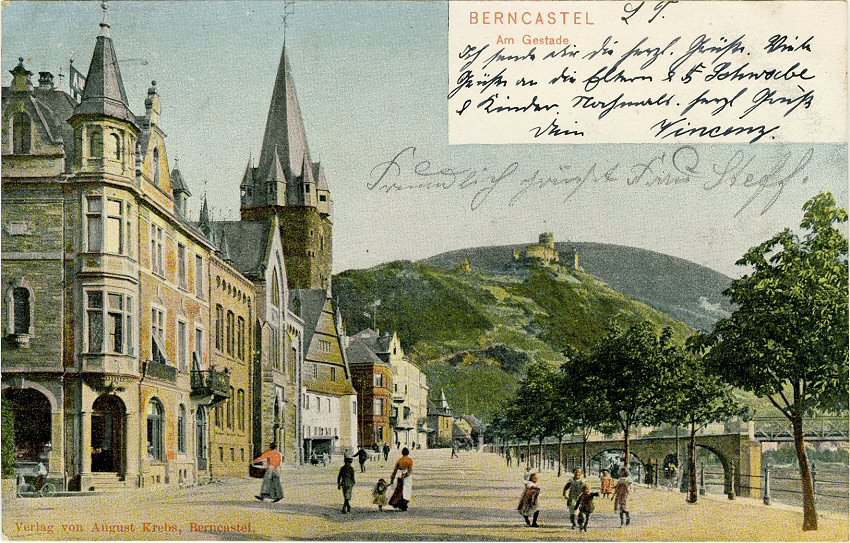 BERNCASTEL
Am Gestade
L T.
Ich sende dir die herzl. Grüße. Viele
Grüße an die Eltern & F. Schwabe
& Kinder. Nochmals. herzl Gruß
Dein Vincenz.
Freundlich grüßt Frau Steff.
Verlag von August Krebs, Berncastel.